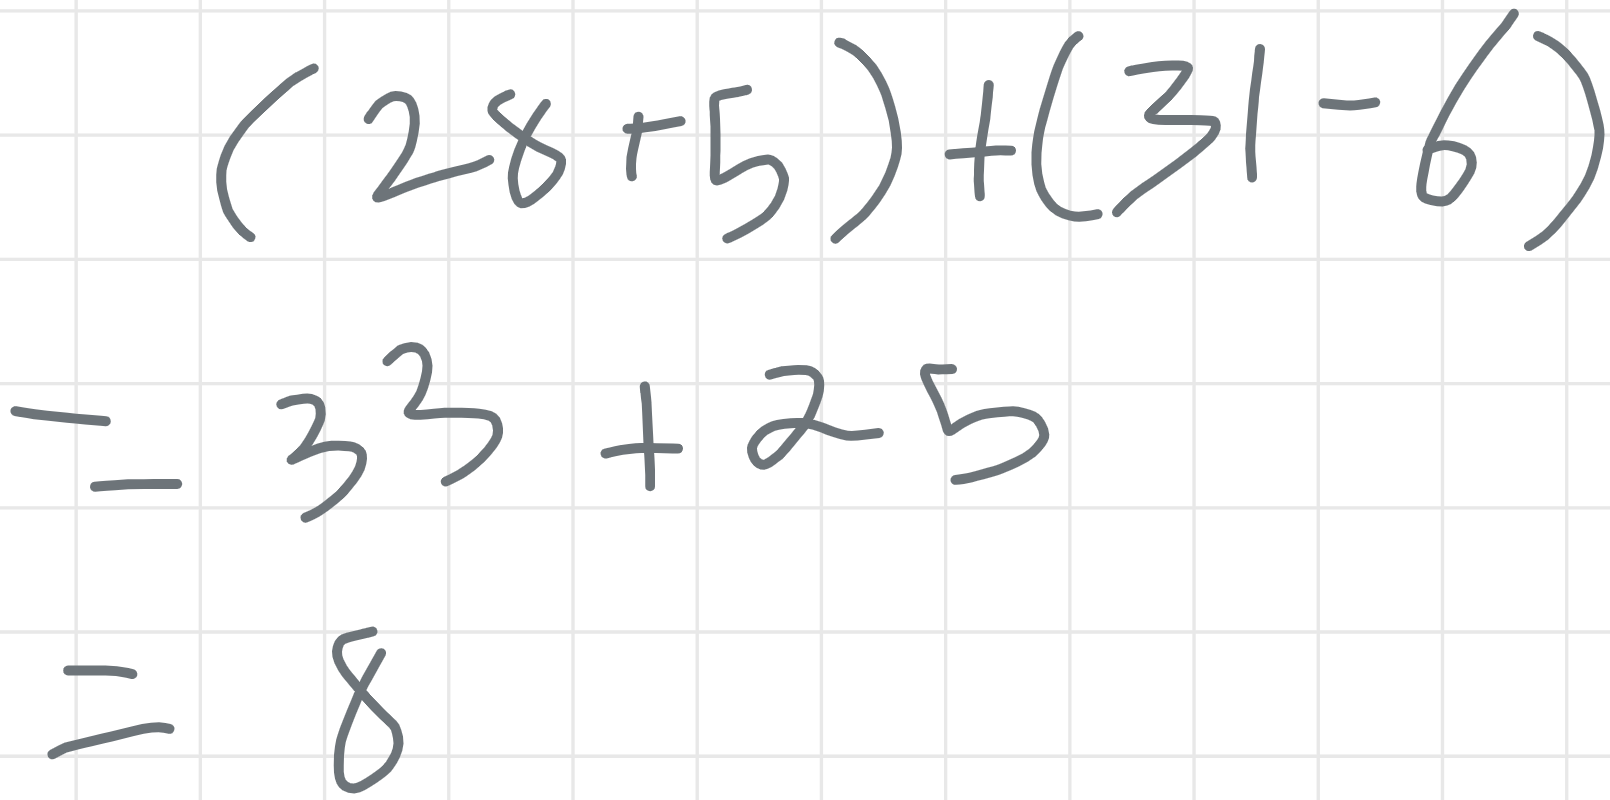 (28+5)+(31-6)
=33+25
=8